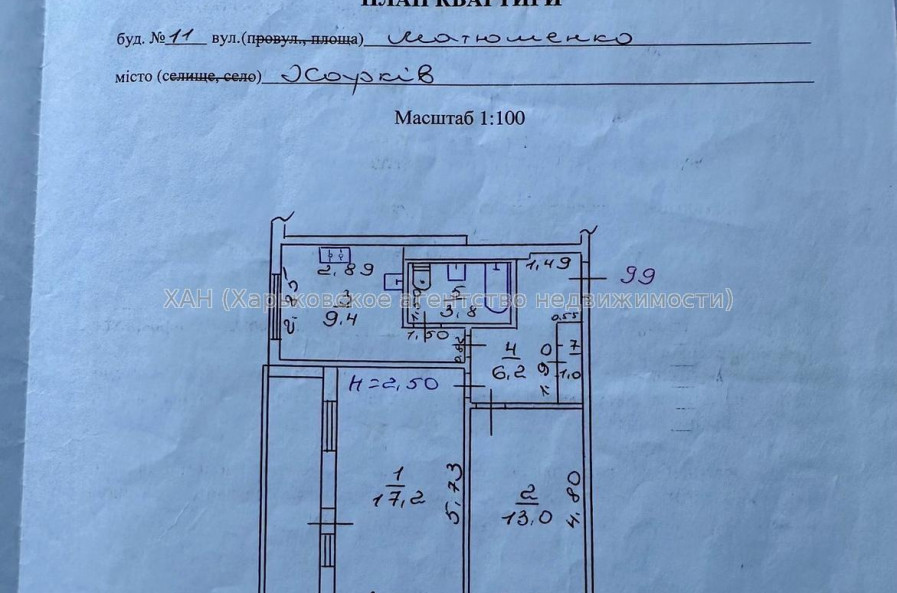 ПЛАН КВАРТИРИ
буд. № 11 вул.(провул., площа) Матюшенко
місто (селище, село) Харків
Масштаб 1:100
2,89
1,49
99
3
9,4
5
3,8
ХАН (Харьковское агентство недвижимости)
1,50
0,55
4
6,2
7
1,0
1,90
H=2,50
1
17,2
5,73
2
13,0
4,80